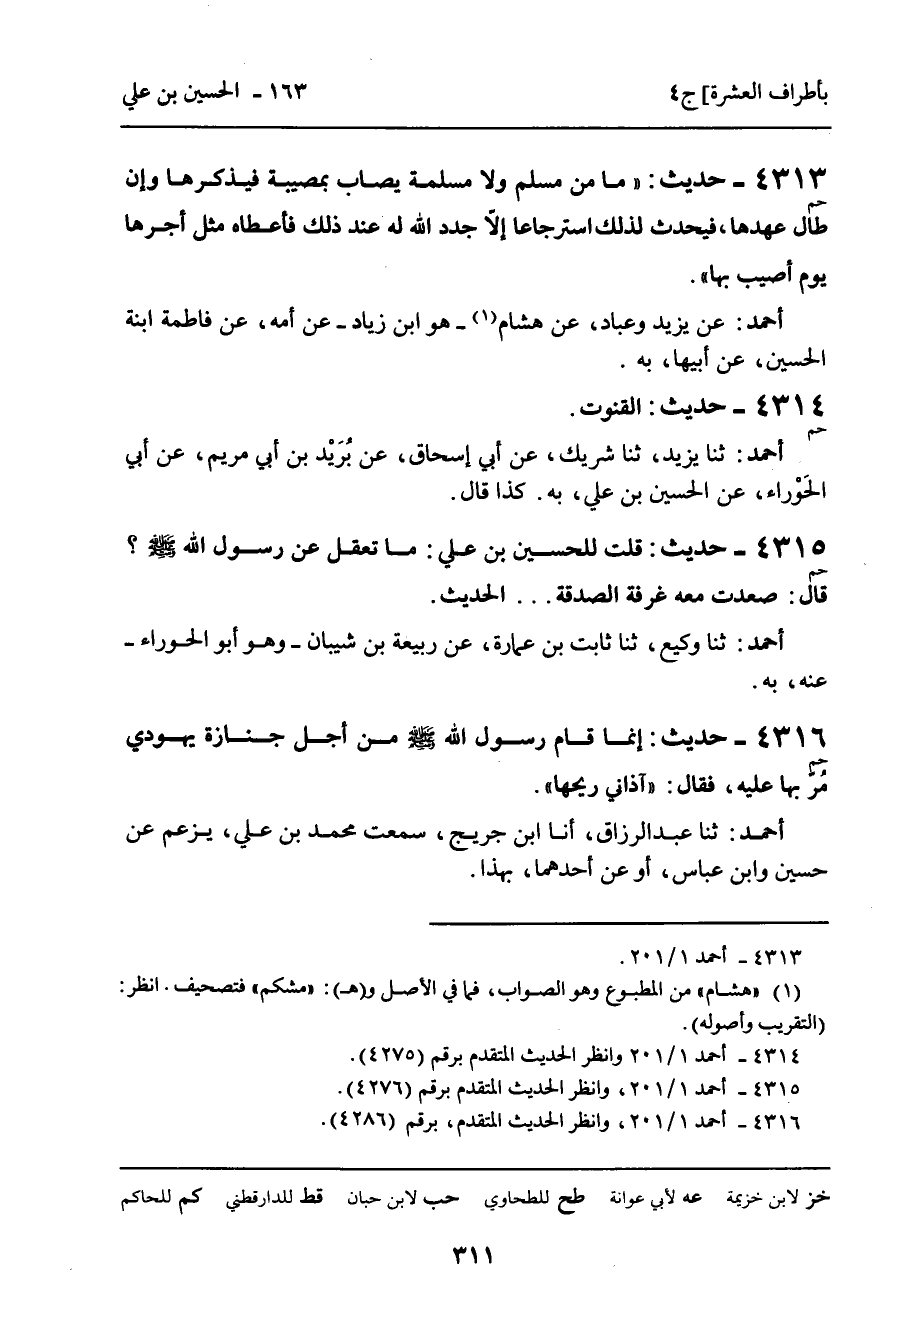 بأطراف العشرة] ج٤
١٦٣ - الحسين بن علي
٤٣١٣ - حديث: « ما من مسلم ولا مسلمة يصاب بمصيبة فيذكرها وإن
حم
طال عهدها، فيحدث لذلك استرجاعا إلاّ جدد الله له عند ذلك فأعطاه مثل أجرها
يوم أصيب بها».
أحمد: عن يزيد وعباد، عن هشام(١) - هو ابن زياد - عن أمه، عن فاطمة ابنة
الحسين، عن أبيها، به .
٤٣١٤ - حديث: القنوت.
حم
أحمد: ثنا يزيد، ثنا شريك، عن أبي إسحاق، عن بُرَيْد بن أبي مريم، عن أبي
الحَوْراء، عن الحسين بن علي، به. كذا قال.
٤٣١٥ - حديث: قلت للحسين بن علي: ما تعقل عن رسول الله ﷺ ؟
حم
قال: صعدت معه غرفة الصدقة ... الحديث.
أحمد: ثنا وكيع، ثنا ثابت بن عمارة، عن ربيعة بن شيبان - وهو أبو الحوراء -
عنه، به.
٤٣١٦ - حديث: إنما قام رسول الله ﷺ من أجل جنازة يهودي
حم
مُرَّ بها عليه، فقال: «آذاني ريحها».
أحمد: ثنا عبدالرزاق، أنا ابن جريج، سمعت محمد بن علي، يزعم عن
حسين وابن عباس، أو عن أحدهما، بهذا.
٤٣١٣ - أحمد ٢٠١/١ .
(١) «هشام» من المطبوع وهو الصواب، فما في الأصل و(هـ): «مشكم» فتصحيف. انظر:
(التقريب وأصوله).
٤٣١٤ - أحمد ٢٠١/١ وانظر الحديث المتقدم برقم (٤٢٧٥).
٤٣١٥ - أحمد ٢٠١/١، وانظر الحديث المتقدم برقم (٤٢٧٦).
٤٣١٦ - أحمد ٢٠١/١، وانظر الحديث المتقدم، برقم (٤٢٨٦).
خز لابن خزيمة عه لأبي عوانة طح للطحاوي حب لابن حبان قط للدارقطني كم للحاكم
٣١١